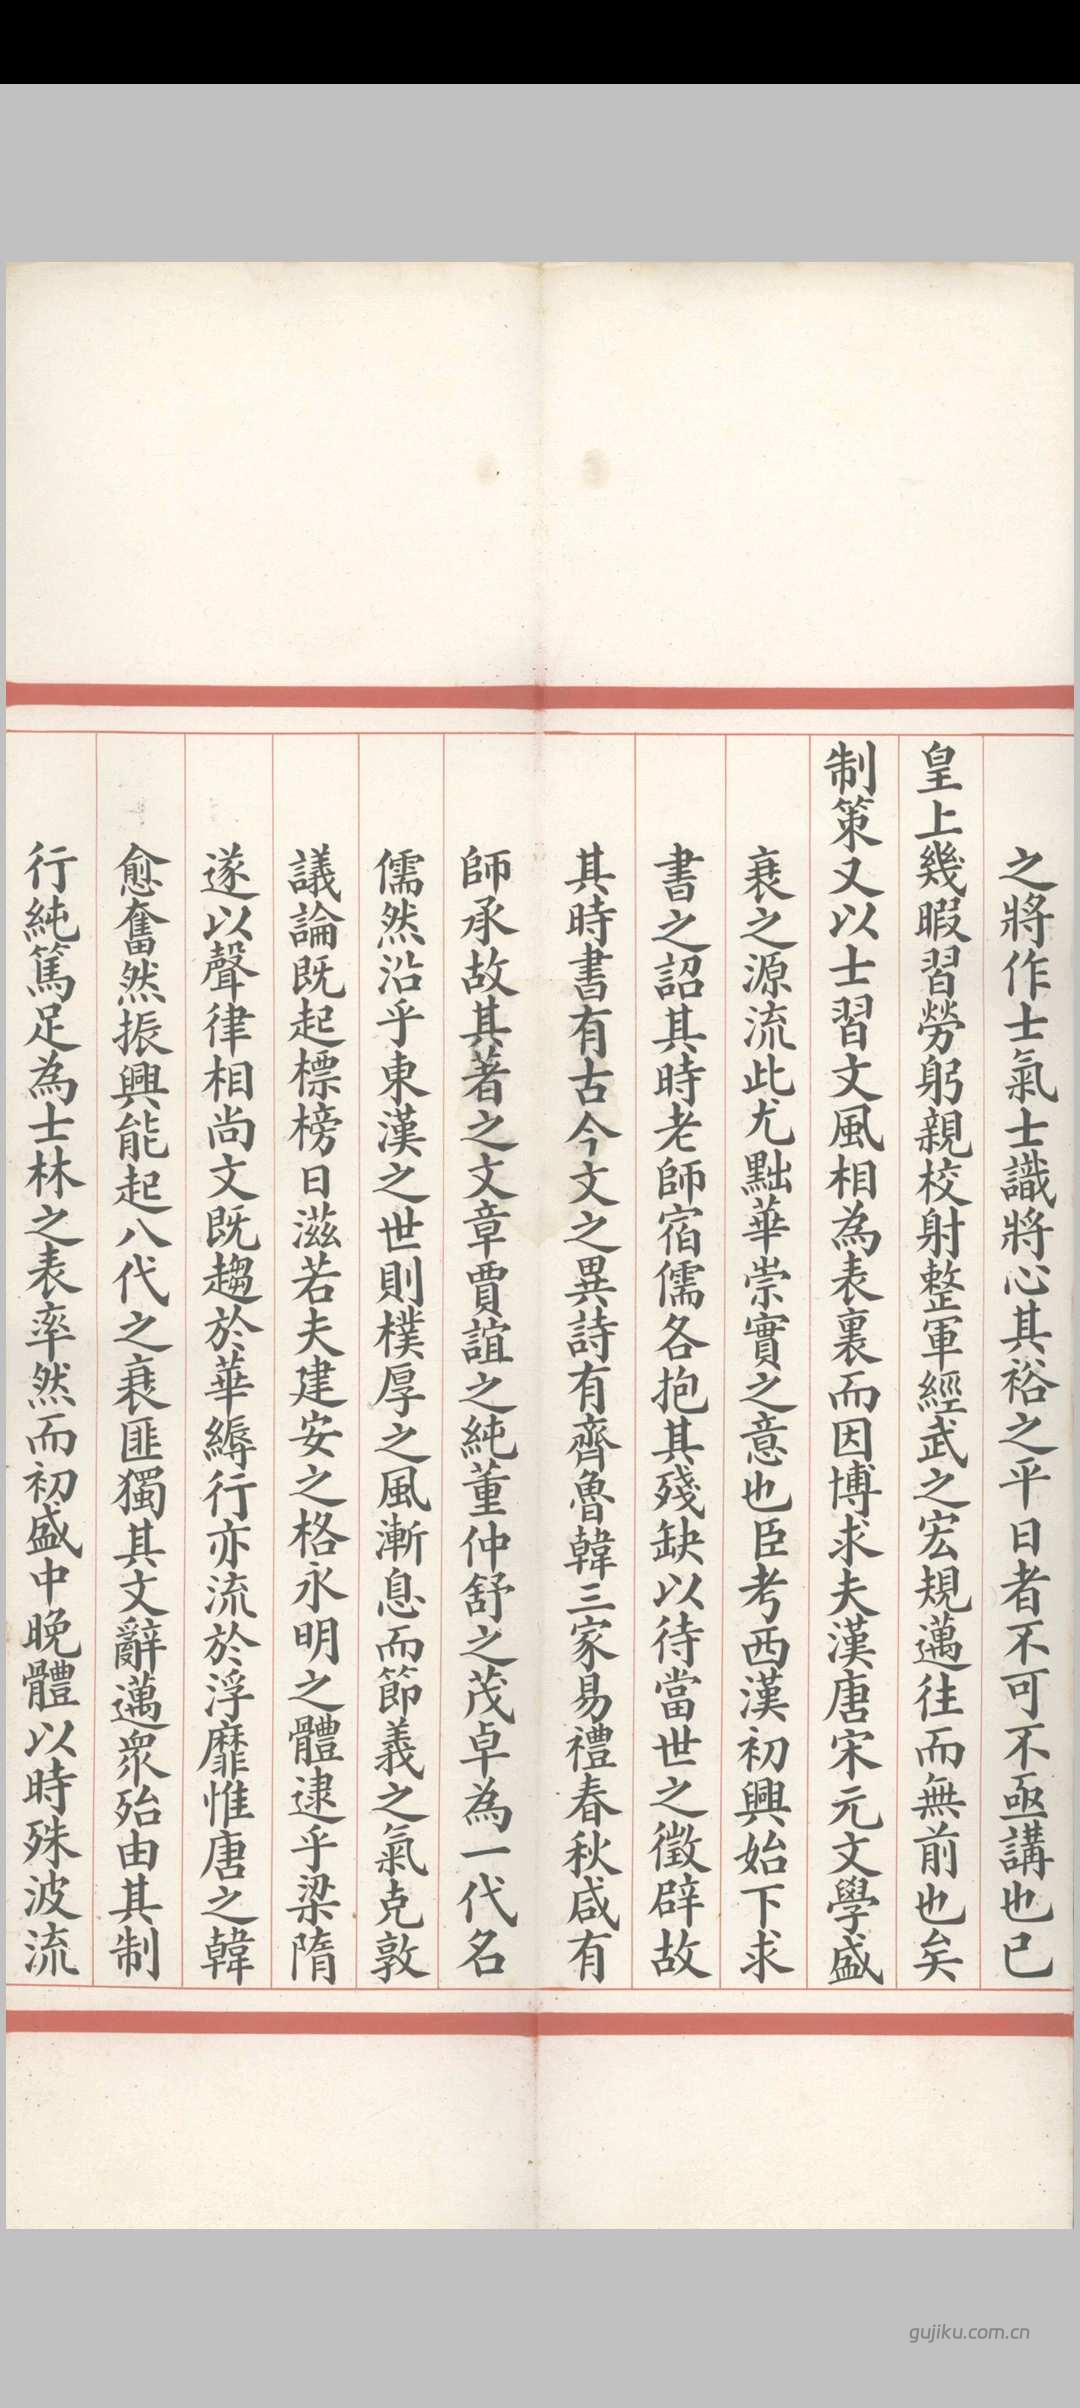 之將作士氣士識將心其裕之平日者不可不亟講也已
皇上幾暇習勞躬親校射整軍經武之宏規邁往而無前也矣
制策又以士習文風相為表裏而因博求夫漢唐宋元文學盛
衰之源流此尤黜華崇實之意也臣考西漢初興始下求
書之詔其時老師宿儒各抱其殘缺以待當世之徵辟故
其時書有古今文之異詩有齊魯韓三家易禮春秋咸有
師承故其著之文章賈誼之純董仲舒之茂卓為一代名
儒然沿乎東漢之世則樸厚之風漸息而節義之氣克敦
議論既起標榜日滋若夫建安之格永明之體逮乎梁隋
遂以聲律相尚文既趨於華縟行亦流於浮靡惟唐之韓
愈奮然振興能起八代之衰匪獨其文辭邁眾殆由其制
行純篤足為士林之表率然而初盛中晚體以時殊波流
gujiku.com.cn